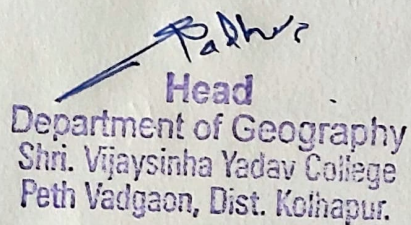 Head
Department of Geography
Shri. Vijaysinha Yadav College
Peth Vadgaon, Dist. Kolhapur.